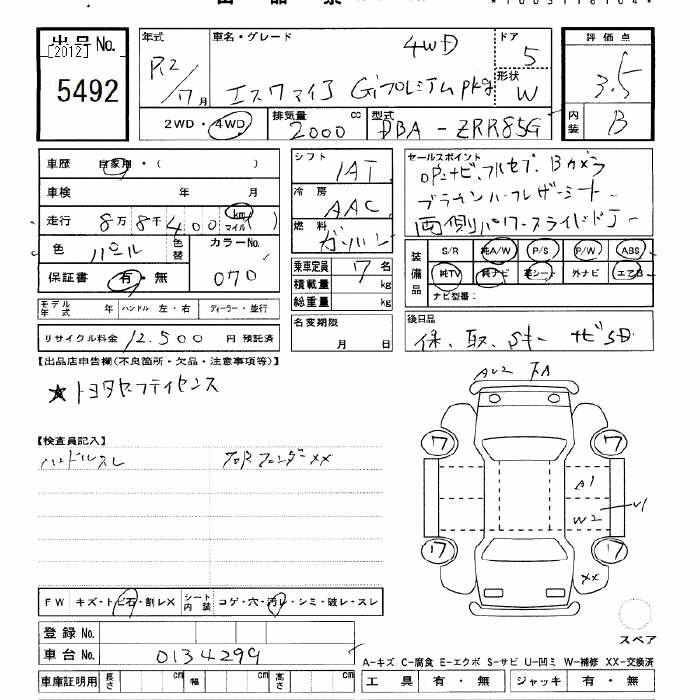 出品No.
[2012]
5492
年式
R2/17月
車名・グレード
4WD
エスクァイア Giプレミアムpkg
ドア
5
形状
W
評価点
3.5
内装
B
2WD・4WD
排気量
2000
cc
型式
DBA-ZRR85G
車歴 自家用・( )
車検 年 月
走行 8万8千400 km マイル ( )
色 パール 色替
カラーNo.
070
保証書 有・無
シフト
1AT
冷房
AAC
燃料
ガソリン
乗車定員 7名
積載量 kg
総重量 kg
セールスポイント
OPナビ、フルセグ、Bカメラ
ブラウンハーフレザーシート
両側パワースライドドア
装備品
S/R 純A/W P/S P/W ABS
純TV 純ナビ 革シート 外ナビ エアB
ナビ型番:
モデル年式 年 ハンドル 左・右 ディーラー・並行
リサイクル料金 12,500 円 預託済
名変期限
月 日
後日品
保、取、Sキー ナビSD
【出品店申告欄(不良箇所・欠品・注意事項等)】
★トヨタセーフティセンス
AU2
【検査員記入】
ハンドルスレ
右Rフェンダーxx
7
7
A1
W2
17
17
xx
FW キズ・トビ石・割レX シート内装 コゲ・穴・汚レ・シミ・破レ・スレ
登録No.
車台No. 0134299
スペア
A-キズ C-腐食 E-エクボ S-サビ U-凹ミ W-補修 XX-交換済
車庫証明用 長さ cm 幅 cm 高さ cm
工具 有・無 ジャッキ 有・無